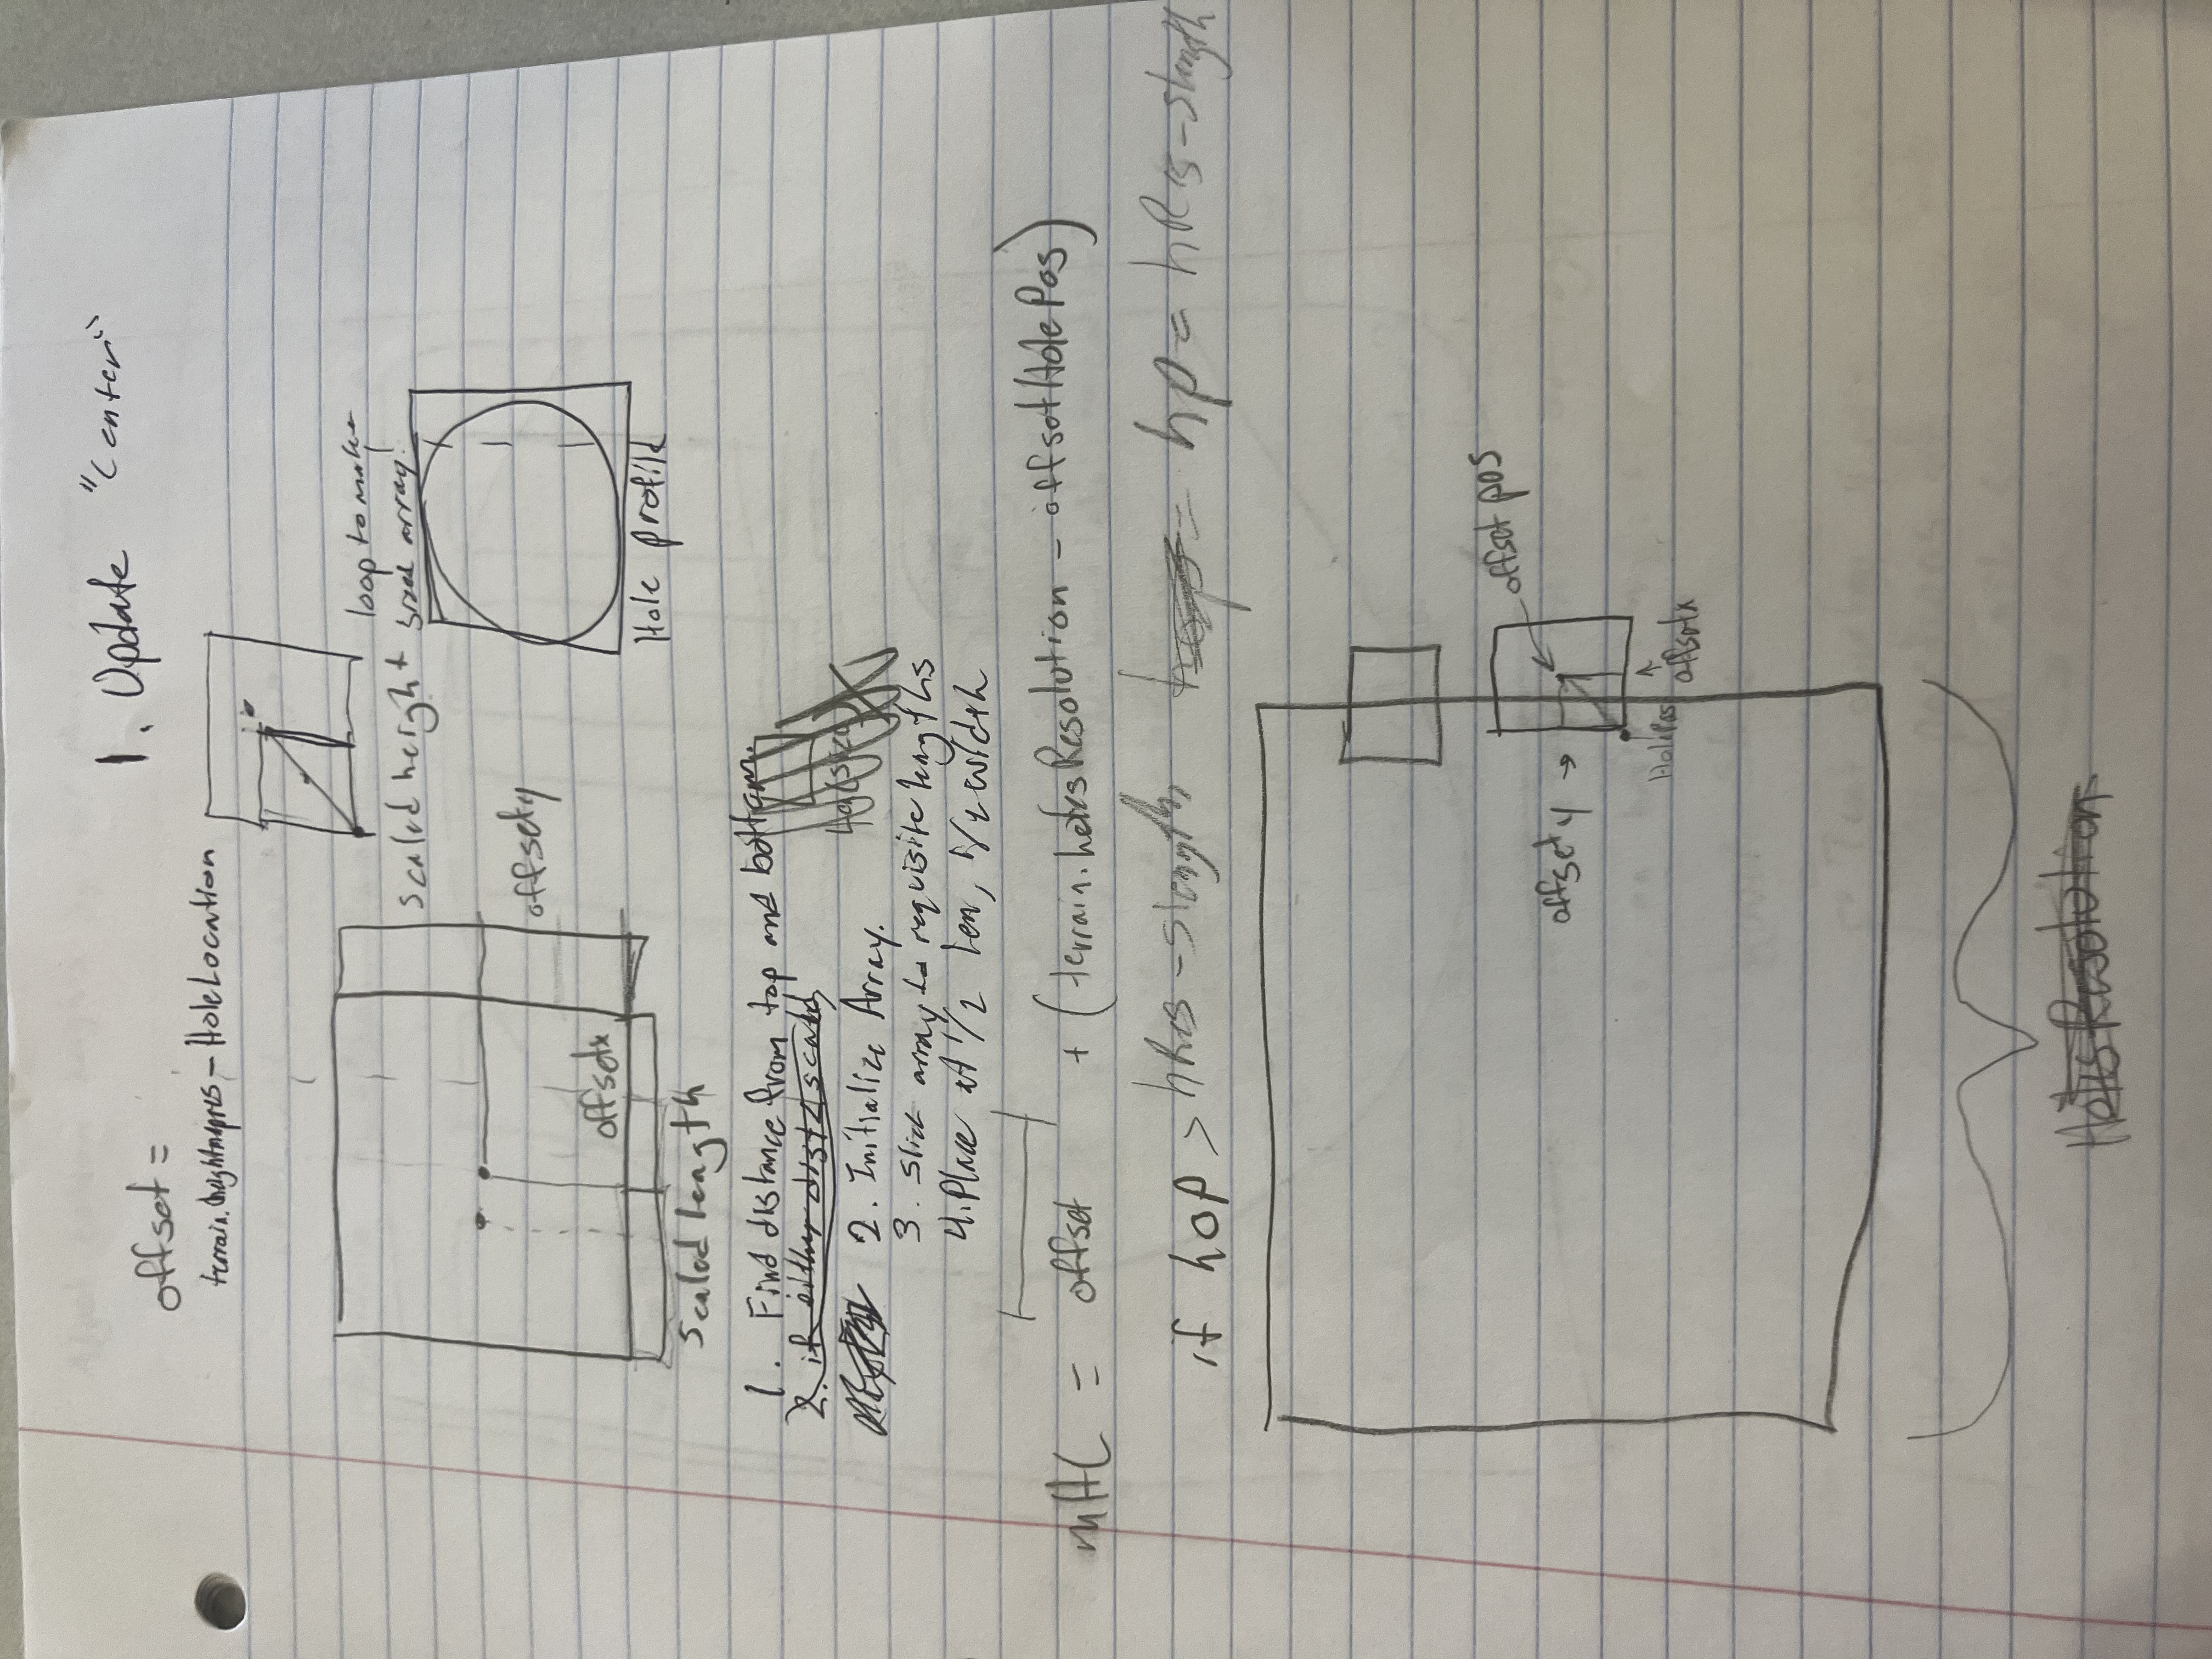 1. Update "Center"
offset =
terrain.heightmapres - HoleLocation
loop to make
sized array.
scaled height
offsety
offsetx
Scaled length
Hole profile
1. Find distance from top and bottom.
2. if either dist < scaled
2. Initialize Array.
3. Slice array to requisite lengths
4. Place at 1/2 len, 1/2 width
= offset + (terrain.holesResolution - offsetHolePos)
if hop > hres - slength, hp = hRes - slength
offset pos
offset y →
HolePos
offsetx
HolesResolution